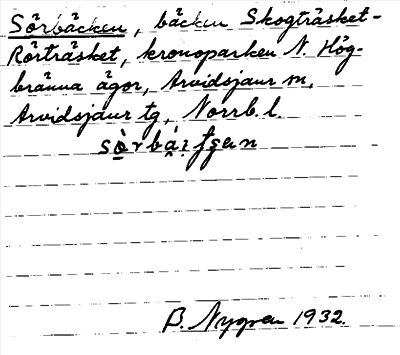 Sörbäcken, bäcken Skogträsket-
Rörträsket, kronoparken N. Hög-
bränna ägor, Arvidsjaur sn,
Arvidsjaur tg, Norrb. l.
B. Nygren 1932.